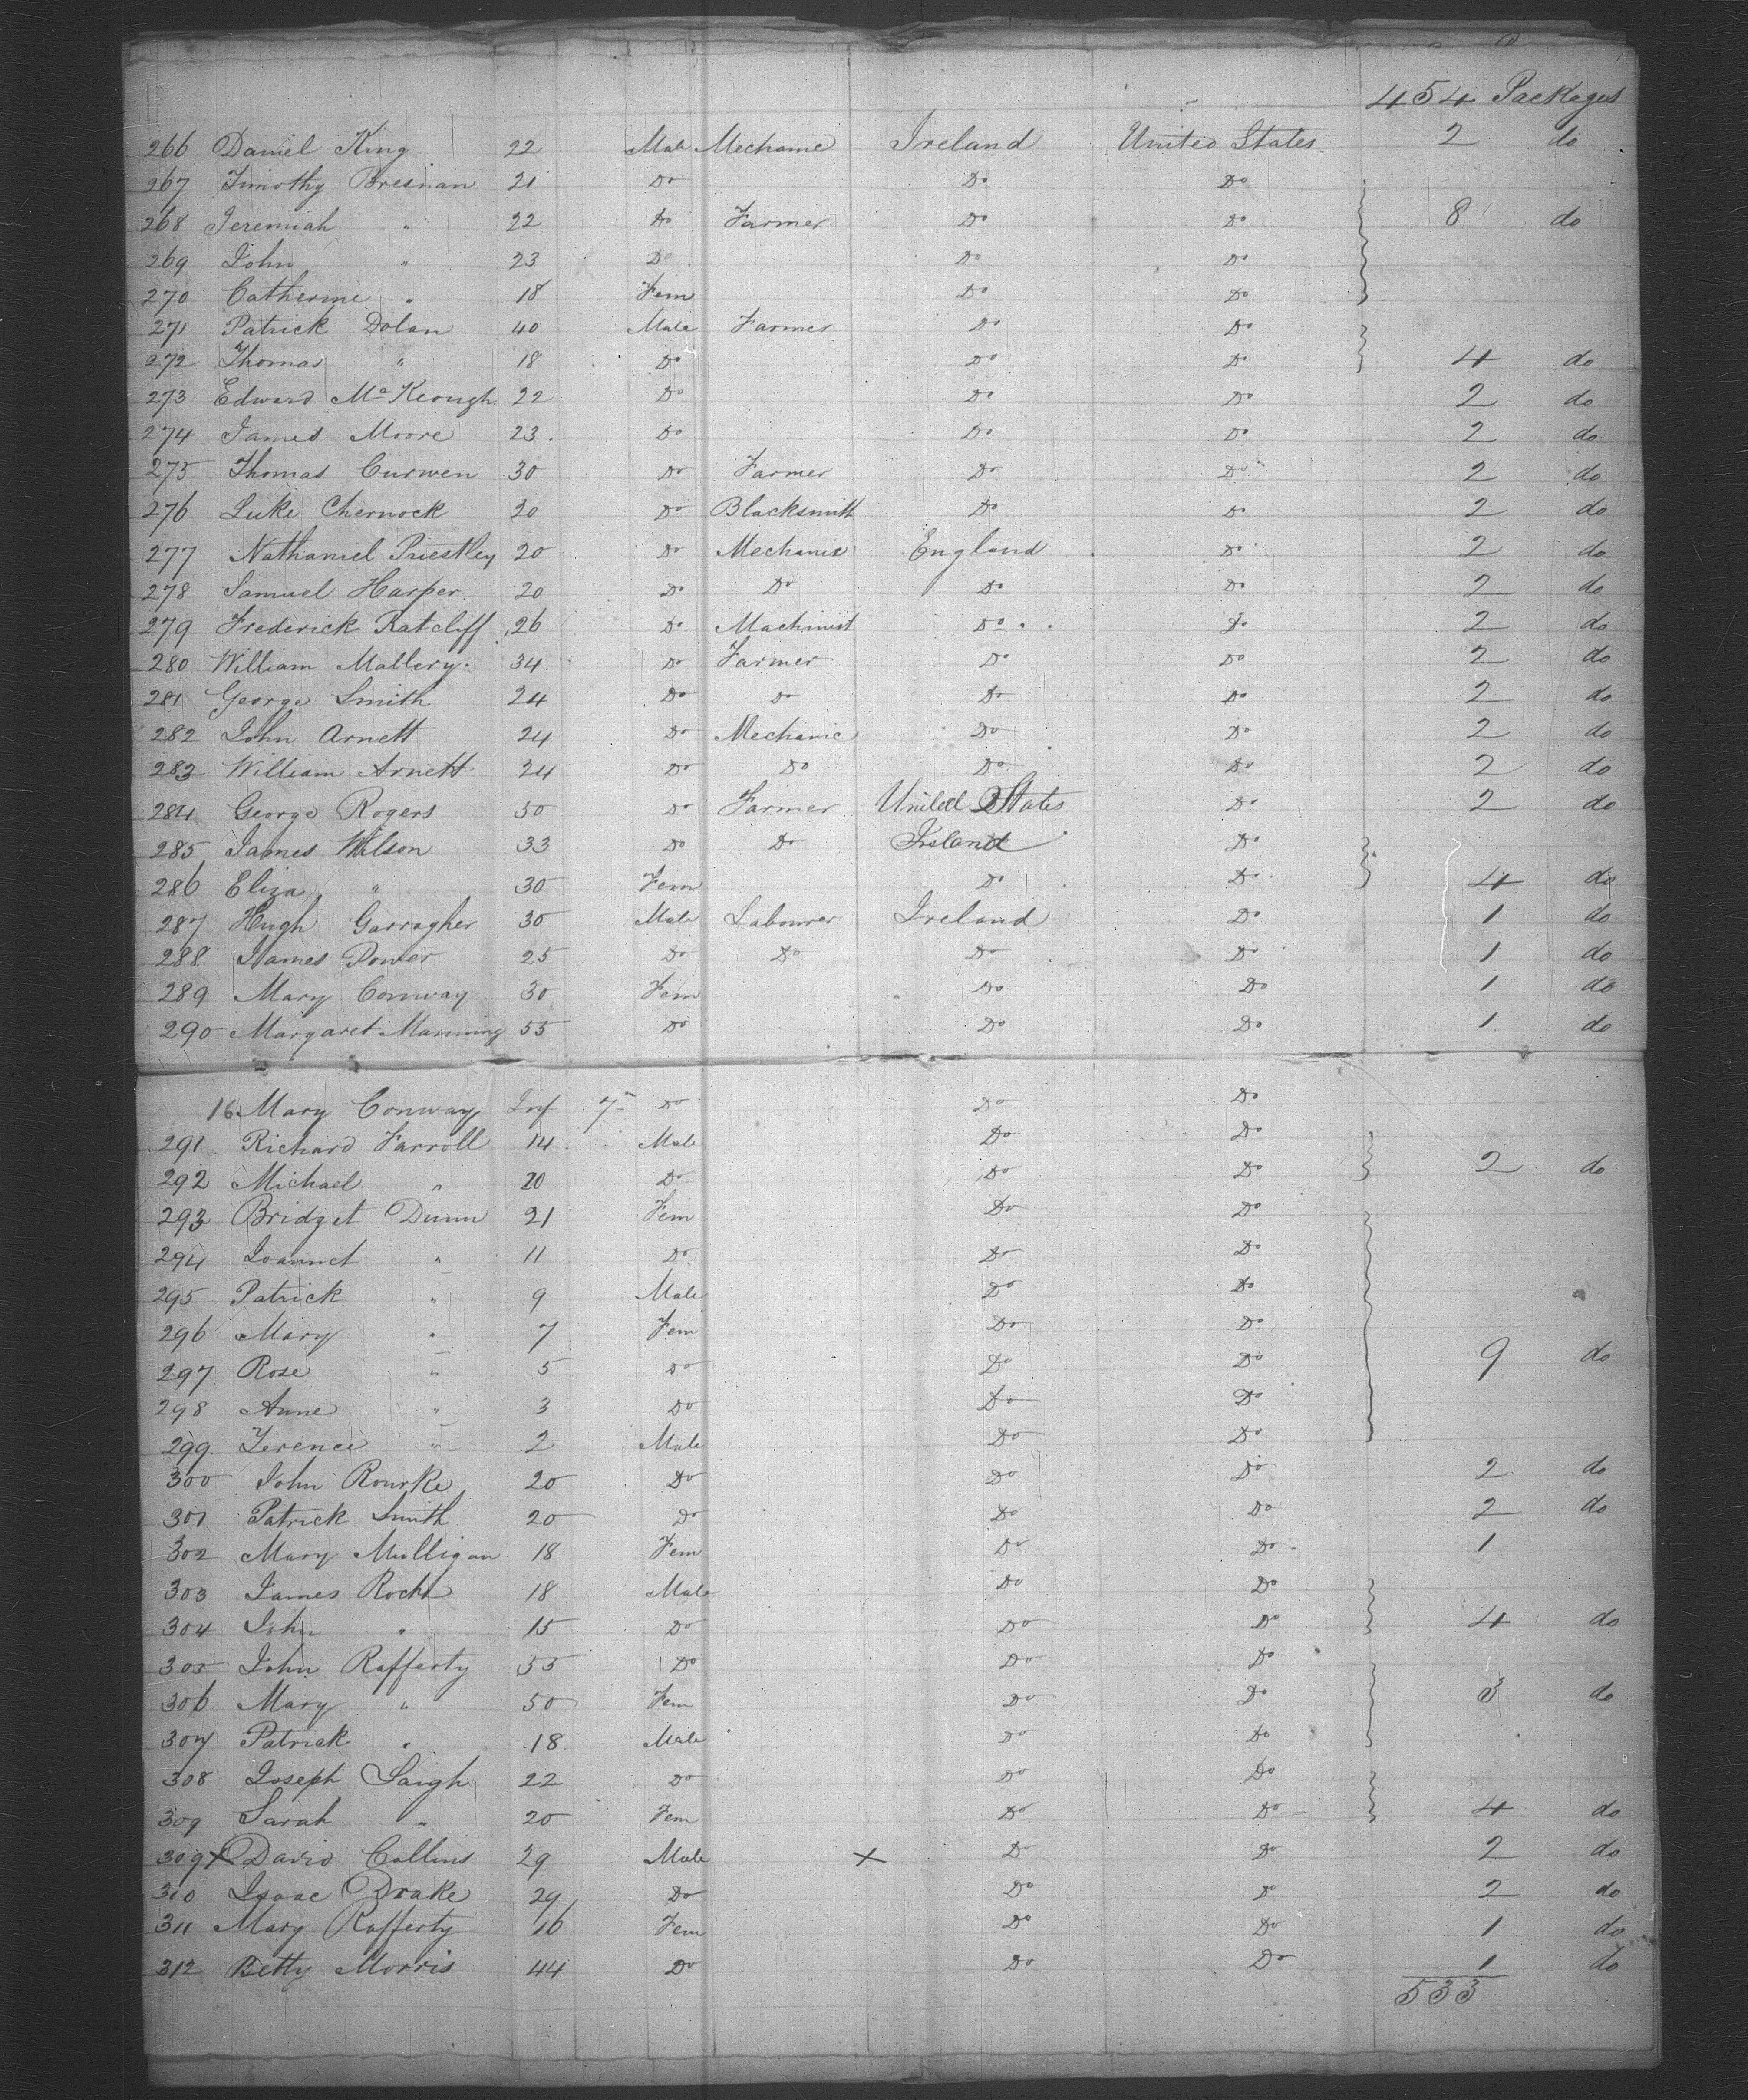 454 Packages
266 Daniel King 22 Male Mechanic Ireland United States 2 do
267 Timothy Bresnan 21 Do Do Do
268 Jeremiah " 22 Do Farmer Do Do 8 do
269 John " 23 Do Do Do
270 Catherine " 18 Fem Do Do
271 Patrick Dolan 40 Male Farmer Do Do
272 Thomas " 18 Do Do Do 4 do
273 Edward Mc Keough 22 Do Do Do 2 do
274 James Moore 23 Do Do Do 2 do
275 Thomas Curwen 30 Do Farmer Do Do 2 do
276 Luke Chernock 20 Do Blacksmith Do Do 2 do
277 Nathaniel Priestley 20 Do Mechanic England Do 2 do
278 Samuel Harper 20 Do Do Do Do 2 do
279 Frederick Ratcliff 26 Do Machinist Do Do 2 do
280 William Mallery 34 Do Farmer Do Do 2 do
281 George Smith 24 Do Do Do Do 2 do
282 John Arnett 24 Do Mechanic Do Do 2 do
283 William Arnett 24 Do Do Do Do 2 do
284 George Rogers 50 Do Farmer United States Do 2 do
285 James Wilson 33 Do Do Do
286 Eliza " 30 Fem Do Do 4 do
287 Hugh Garragher 30 Male Labourer Ireland Do 1 do
288 James Power 25 Do Do Do Do 1 do
289 Mary Conway 30 Fem Do Do 1 do
290 Margaret Manning 55 Do Do Do 1 do
16 Mary Conway Inf 7 Do Do Do
291 Richard Farroll 14 Male Do Do
292 Michael " 20 Do Do Do 2 do
293 Bridget Dunn 21 Fem Do Do
294 " 11 Do Do Do
295 Patrick " 9 Male Do Do
296 Mary " 7 Fem Do Do
297 Rose " 5 Do Do Do 9 do
298 Anne " 3 Do Do Do
299 Terence " 2 Male Do Do
300 John Rourke 20 Do Do Do 2 do
301 Patrick Smith 20 Do Do Do 2 do
302 Mary Mulligan 18 Fem Do Do 1
303 James Roch 18 Male Do Do
304 John " 15 Do Do Do 4 do
305 John Rafferty 55 Do Do Do
306 Mary " 50 Fem Do Do 3 do
307 Patrick " 18 Male Do Do
308 Joseph Saigh 22 Do Do Do
309 Sarah " 20 Fem Do Do 4 do
309 x David Collins 29 Male x Do Do 2 do
310 Isaac Drake 29 Do Do Do 2 do
311 Mary Rafferty 16 Fem Do Do 1 do
312 Betty Morris 44 Do Do Do 1 do
533